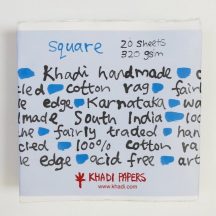 square 20 sheets
320 gsm
Khadi handmade
cled cotton rag fairl
le edge Karnataka
dmade South India 100
the fairly traded han
cled 100% cotton ra
le edge acid free art
KHADI PAPERS
www.khadi.com